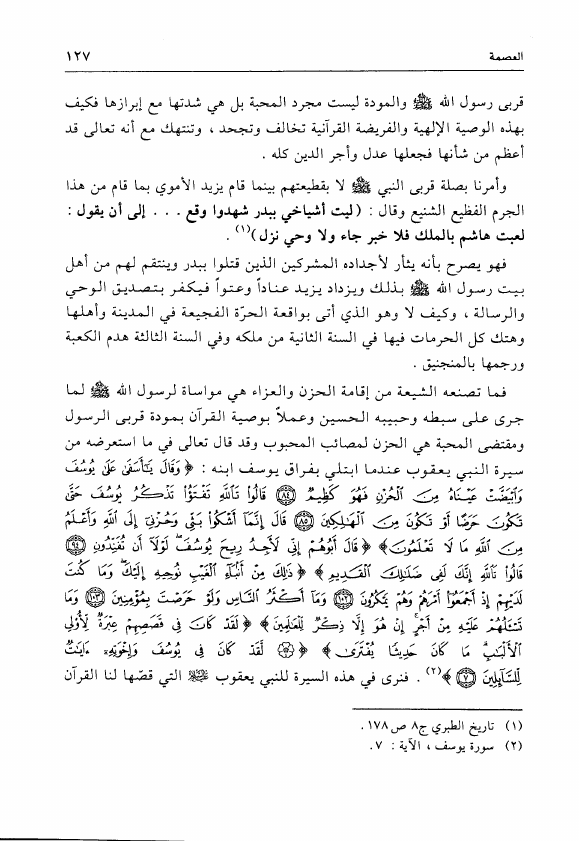 العصمة ١٢٧
قربى رسول الله ﷺ والمودة ليست مجرد المحبة بل هي شدتها مع إبرازها فكيف
بهذه الوصية الإلهية والفريضة القرآنية تخالف وتجحد ، وتنتهك مع أنه تعالى قد
أعظم من شأنها فجعلها عدل وأجر الدين كله .
وأمرنا بصلة قربى النبي ﷺ لا بقطيعتهم بينما قام يزيد الأموي بما قام من هذا
الجرم الفظيع الشنيع وقال : (ليت أشياخي ببدر شهدوا وقع . . . إلى أن يقول :
لعبت هاشم بالملك فلا خبر جاء ولا وحي نزل)(١) .
فهو يصرح بأنه يثأر لأجداده المشركين الذين قتلوا ببدر وينتقم لهم من أهل
بيت رسول الله ﷺ بذلك ويزداد يزيد عناداً وعتواً فيكفر بتصديق الوحي
والرسالة ، وكيف لا وهو الذي أتى بواقعة الحرّة الفجيعة في المدينة وأهلها
وهتك كل الحرمات فيها في السنة الثانية من ملكه وفي السنة الثالثة هدم الكعبة
ورجمها بالمنجنيق .
فما تصنعه الشيعة من إقامة الحزن والعزاء هي مواساة لرسول الله ﷺ لما
جرى على سبطه وحبيبه الحسين وعملاً بوصية القرآن بمودة قربى الرسول
ومقتضى المحبة هي الحزن لمصائب المحبوب وقد قال تعالى في ما استعرضه من
سيرة النبي يعقوب عندما ابتلي بفراق يوسف ابنه : ﴿ وَقَالَ يَٰٓأَسَفَىٰ عَلَىٰ يُوسُفَ
وَٱبۡيَضَّتۡ عَيۡنَاهُ مِنَ ٱلۡحُزۡنِ فَهُوَ كَظِيمٌ ﴿٨٤﴾ قَالُوا۟ تَٱللَّهِ تَفۡتَؤُا۟ تَذۡكُرُ يُوسُفَ حَتَّىٰ
تَكُونَ حَرَضًا أَوۡ تَكُونَ مِنَ ٱلۡهَٰلِكِينَ ﴿٨٥﴾ قَالَ إِنَّمَآ أَشۡكُوا۟ بَثِّي وَحُزۡنِيٓ إِلَى ٱللَّهِ وَأَعۡلَمُ
مِنَ ٱللَّهِ مَا لَا تَعۡلَمُونَ﴾ ﴿ قَالَ أَبُوهُمۡ إِنِّي لَأَجِدُ رِيحَ يُوسُفَ لَوۡلَآ أَن تُفَنِّدُونِ ﴿٩٤﴾
قَالُوا۟ تَٱللَّهِ إِنَّكَ لَفِي ضَلَٰلِكَ ٱلۡقَدِيمِ﴾ ﴿ ذَٰلِكَ مِنۡ أَنۢبَآءِ ٱلۡغَيۡبِ نُوحِيهِ إِلَيۡكَ وَمَا كُنتَ
لَدَيۡهِمۡ إِذۡ أَجۡمَعُوٓا۟ أَمۡرَهُمۡ وَهُمۡ يَمۡكُرُونَ ﴿١٠٢﴾ وَمَآ أَكۡثَرُ ٱلنَّاسِ وَلَوۡ حَرَصۡتَ بِمُؤۡمِنِينَ ﴿١٠٣﴾ وَمَا
تَسۡـَٔلُهُمۡ عَلَيۡهِ مِنۡ أَجۡرٍ إِنۡ هُوَ إِلَّا ذِكۡرٌ لِّلۡعَٰلَمِينَ﴾ ﴿ لَقَدۡ كَانَ فِي قَصَصِهِمۡ عِبۡرَةٌ لِّأُو۟لِي
ٱلۡأَلۡبَٰبِ مَا كَانَ حَدِيثًا يُفۡتَرَىٰ﴾ ﴿ ۞ لَّقَدۡ كَانَ فِي يُوسُفَ وَإِخۡوَتِهِۦٓ ءَايَٰتٌ
لِّلسَّآئِلِينَ ﴿٧﴾ ﴾(٢) . فنرى في هذه السيرة للنبي يعقوب عليه السلام التي قصّها لنا القرآن
(١) تاريخ الطبري ج٨ ص١٧٨ .
(٢) سورة يوسف ، الآية : ٧ .